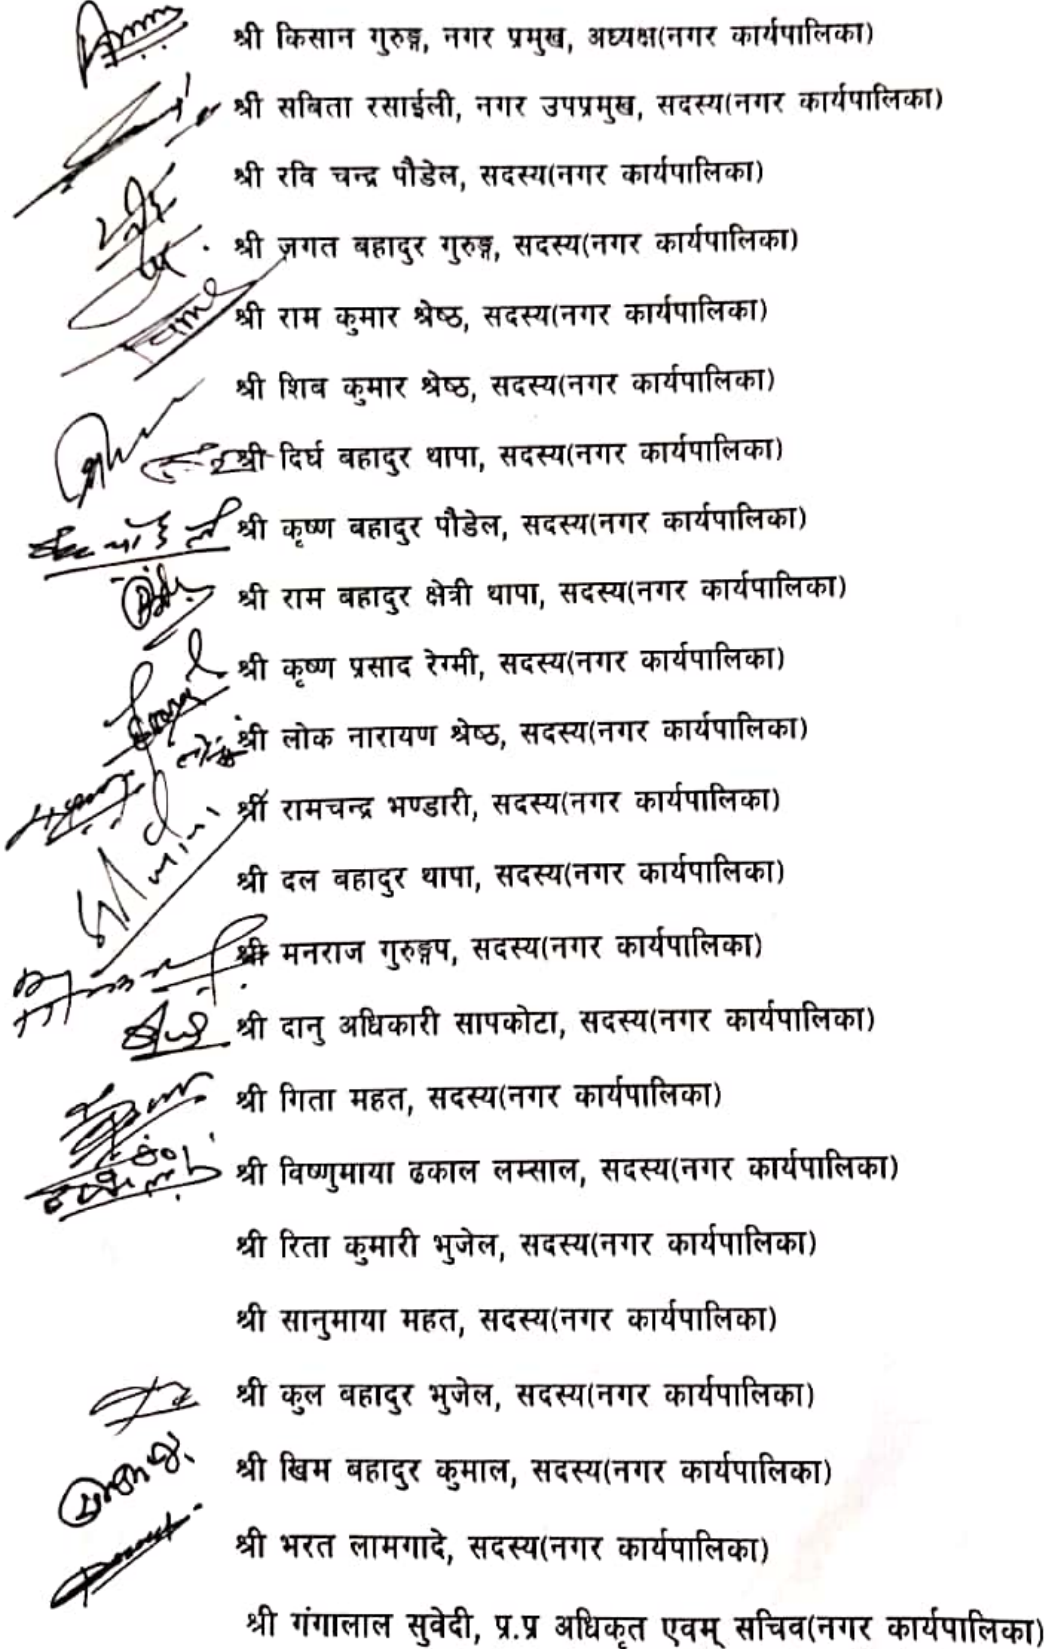 श्री किसान गुरुङ्ग, नगर प्रमुख, अध्यक्ष(नगर कार्यपालिका)
श्री सबिता रसाईली, नगर उपप्रमुख, सदस्य(नगर कार्यपालिका)
श्री रवि चन्द्र पौडेल, सदस्य(नगर कार्यपालिका)
श्री जगत बहादुर गुरुङ्ग, सदस्य(नगर कार्यपालिका)
श्री राम कुमार श्रेष्ठ, सदस्य(नगर कार्यपालिका)
श्री शिब कुमार श्रेष्ठ, सदस्य(नगर कार्यपालिका)
श्री दिर्घ बहादुर थापा, सदस्य(नगर कार्यपालिका)
श्री कृष्ण बहादुर पौडेल, सदस्य(नगर कार्यपालिका)
श्री राम बहादुर क्षेत्री थापा, सदस्य(नगर कार्यपालिका)
श्री कृष्ण प्रसाद रेग्मी, सदस्य(नगर कार्यपालिका)
श्री लोक नारायण श्रेष्ठ, सदस्य(नगर कार्यपालिका)
श्री रामचन्द्र भण्डारी, सदस्य(नगर कार्यपालिका)
श्री दल बहादुर थापा, सदस्य(नगर कार्यपालिका)
श्री मनराज गुरुङ्गप, सदस्य(नगर कार्यपालिका)
श्री दानु अधिकारी सापकोटा, सदस्य(नगर कार्यपालिका)
श्री गिता महत, सदस्य(नगर कार्यपालिका)
श्री विष्णुमाया ढकाल लम्साल, सदस्य(नगर कार्यपालिका)
श्री रिता कुमारी भुजेल, सदस्य(नगर कार्यपालिका)
श्री सानुमाया महत, सदस्य(नगर कार्यपालिका)
श्री कुल बहादुर भुजेल, सदस्य(नगर कार्यपालिका)
श्री खिम बहादुर कुमाल, सदस्य(नगर कार्यपालिका)
श्री भरत लामगादे, सदस्य(नगर कार्यपालिका)
श्री गंगालाल सुवेदी, प्र.प्र अधिकृत एवम् सचिव(नगर कार्यपालिका)